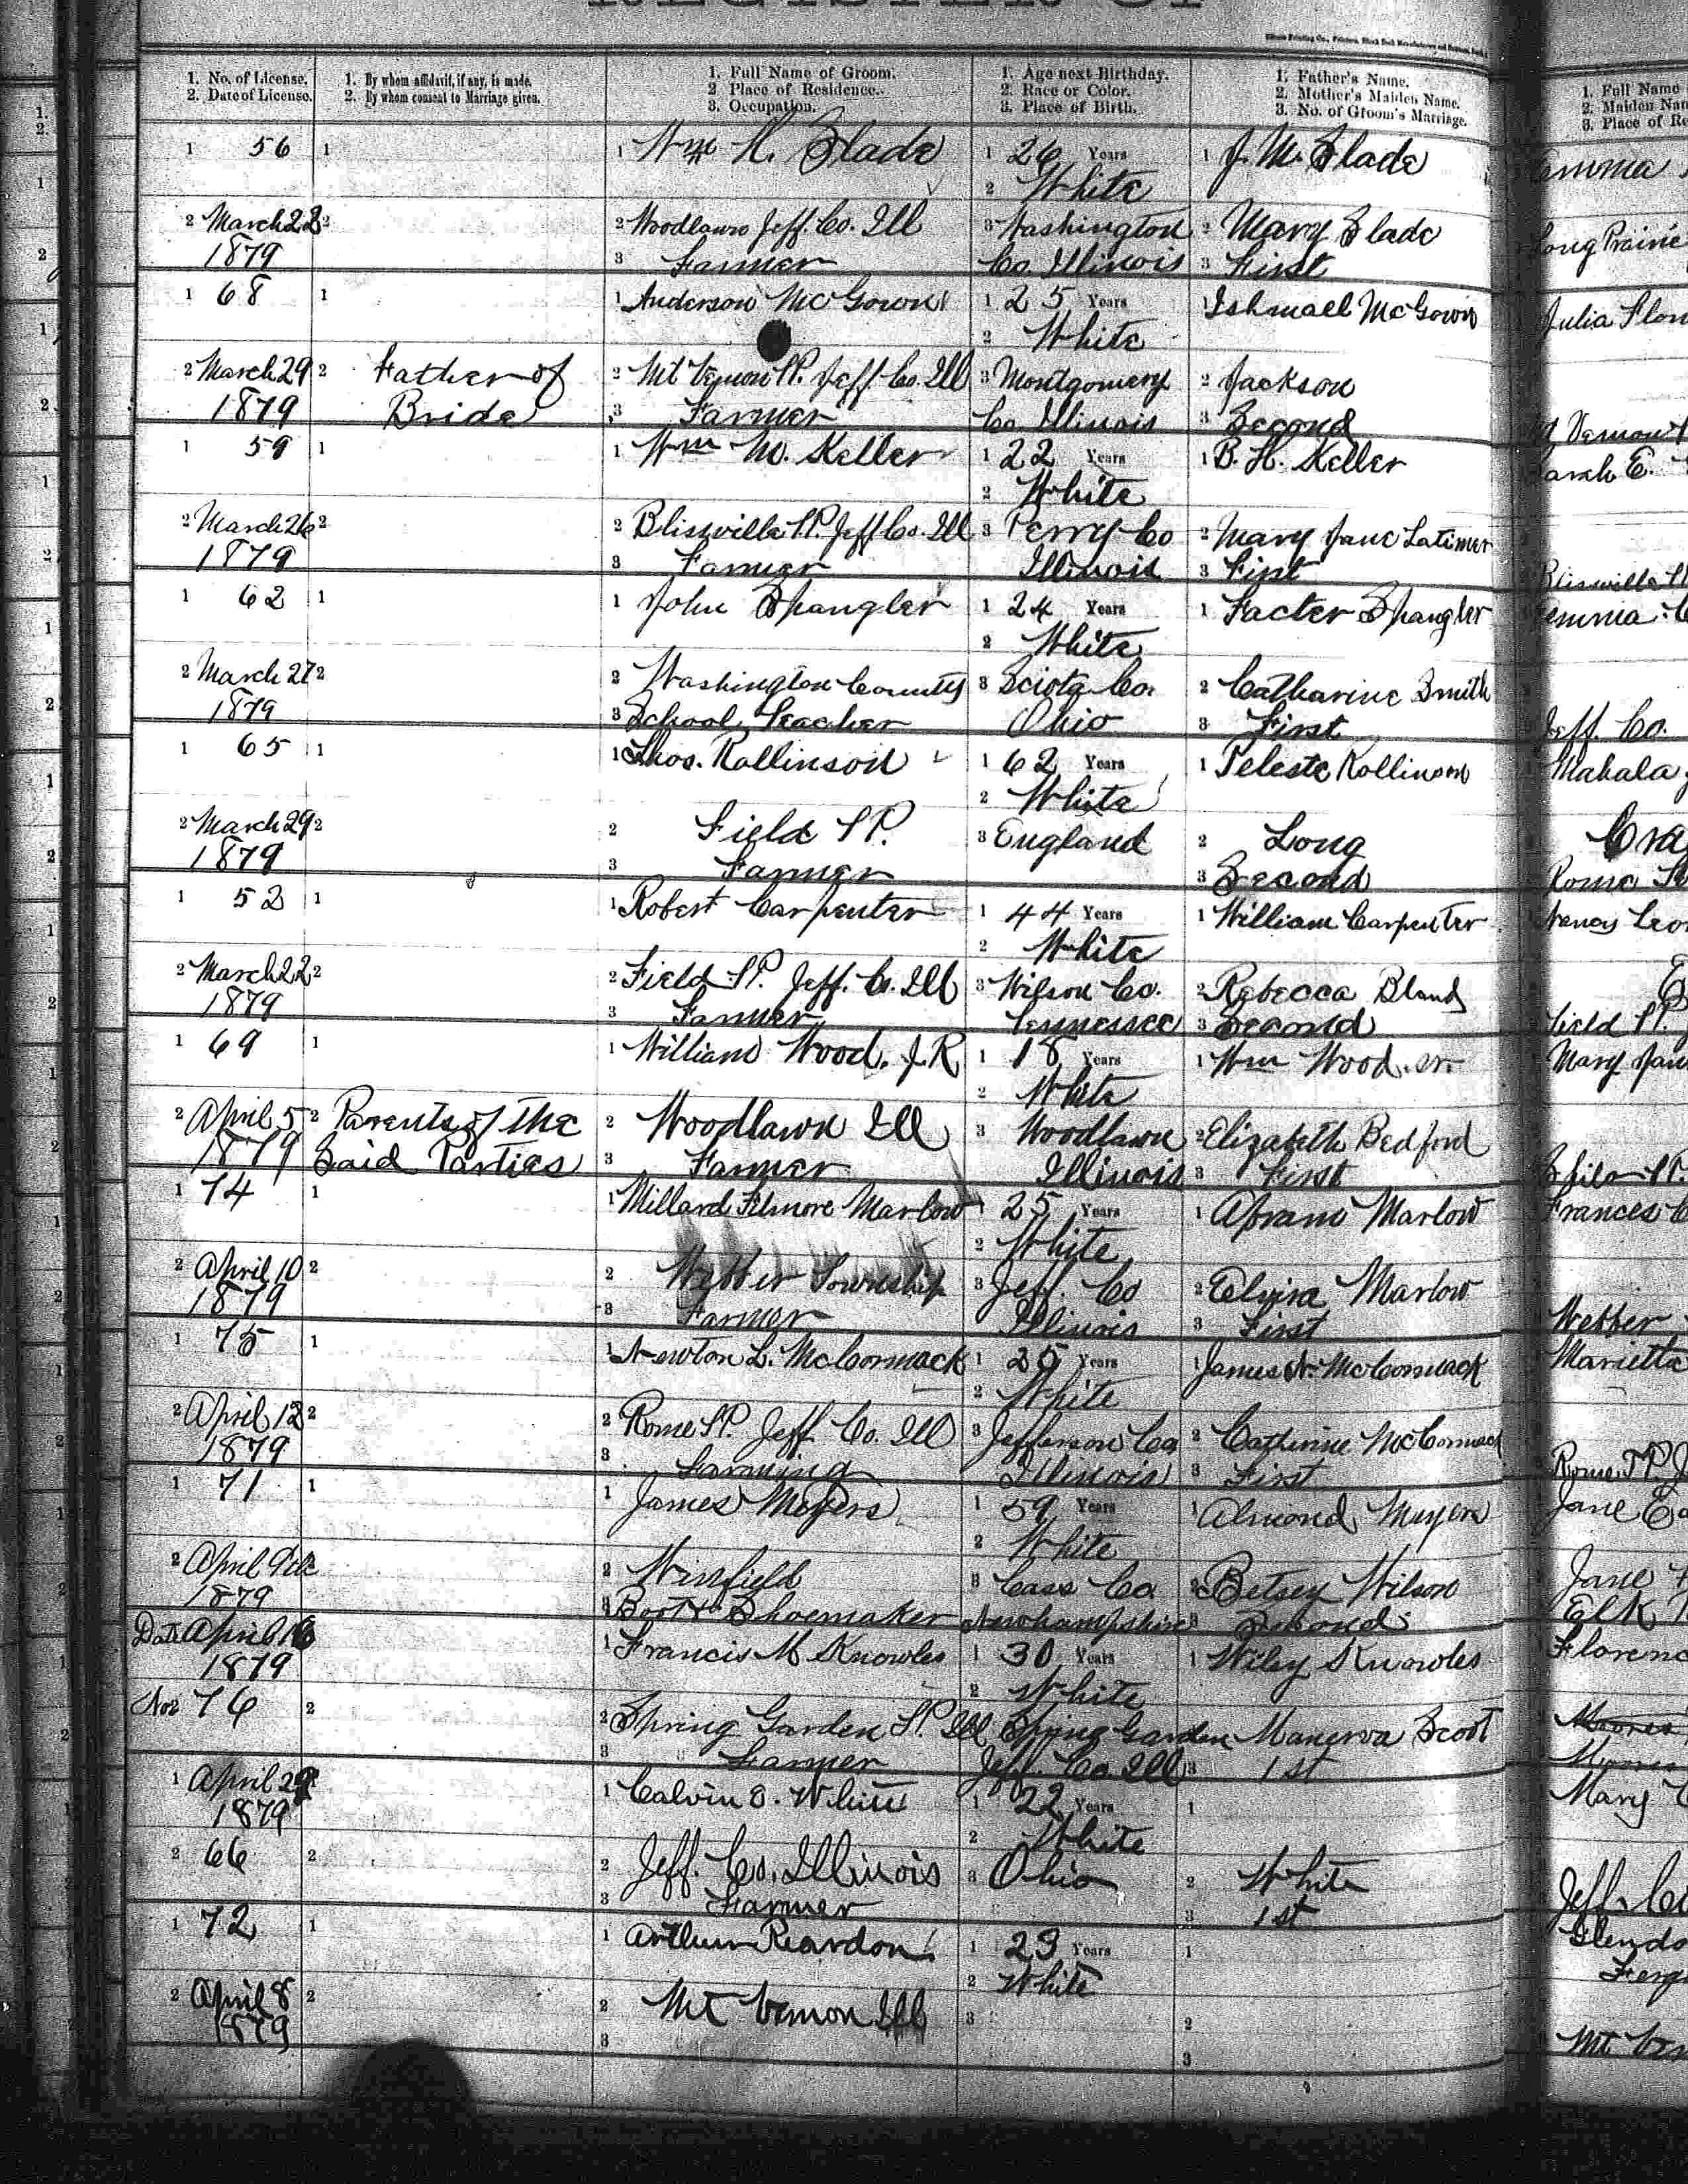 REGISTER OF
1. No. of License.
2. Date of License.
1. By whom affidavit, if any, is made.
2. By whom consent to Marriage given.
1. Full Name of Groom.
2 Place of Residence.
3. Occupation.
1. Age next Birthday.
2. Race or Color.
3. Place of Birth.
1. Father's Name.
2. Mother's Maiden Name.
3. No. of Groom's Marriage.
1. Full Name
2. Maiden Nam
3. Place of Re
1 56 1 1 Wm H. Slade 1 26 Years 1 J. M. Slade
2 White
2 March 22 2 2 Woodlawn Jeff. Co. Ill 3 Washington 2 Mary Slade Long Prairie
1879 3 Farmer Co Illinois 3 First
1 68 1 1 Anderson McGown 1 25 Years 1 Ishmael McGown Julia
2 White
2 March 29 2 Father of 2 Mt Vernon T.P. Jeff Co. Ill 3 Montgomery 2 Jackson
1879 Bride 3 Farmer Co Illinois 3 Second Mt Vernon
1 59 1 1 Wm M. Keller 1 22 Years 1 B. H. Keller Sarah E.
2 White
2 March 26 2 2 Blissville T.P. Jeff Co. Ill 3 Perry Co 2 Mary Jane Latimer
1879 3 Farmer Illinois 3 First Blissville
1 62 1 1 John Spangler 1 24 Years 1 Facter Spangler
2 White
2 March 27 2 2 Washington County 3 Sciota Co. 2 Catharine Smith
1879 3 School Teacher Ohio 3 First Jeff. Co.
1 65 1 1 Thos. Rollinson 1 62 Years 1 Teleste Rollinson Mahala
2 White
2 March 29 2 2 Field T.P. 3 England 2 Long Cra
1879 3 Farmer 3 Second Rome
1 52 1 1 Robert Carpenter 1 44 Years 1 William Carpenter Nancy
2 White
2 March 22 2 2 Field T.P. Jeff. Co. Ill 3 Wilson Co. 2 Rebecca Bland
1879 3 Farmer Tennessee 3 Second Field T.P.
1 69 1 1 William Wood. J.R 1 18 Years 1 Wm Wood. sr. Mary Jane
2 White
2 April 5 2 Parents of the 2 Woodlawn Ill 3 Woodlawn 2 Elizabeth Bedford
1879 Said Parties 3 Farmer Illinois 3 First
1 74 1 1 Millard Filmore Marlow 1 25 Years 1 Abram Marlow Frances
2 White
2 April 10 2 2 Webber Township 3 Jeff. Co 2 Elvira Marlow
1879 3 Farmer Illinois 3 First Webber
1 75 1 1 Newton L. McCormack 1 25 Years 1 James N. McCormack Marietta
2 White
2 April 12 2 2 Rome T.P. Jeff Co. Ill 3 Jefferson Co 2 Catherine McCormack
1879 3 Farming Illinois 3 First Rome T.P. J
1 71 1 1 James Meyers 1 59 Years 1 Almond Meyers Jane
2 White
2 April 9th 2 2 Winfield 3 Cass Co. 2 Betsey Wilson Jane
1879 3 Boot & Shoemaker Newhampshire 3 Second Elk
Date April 16 1 Francis M Knowles 1 30 Years 1 Wiley Knowles Florenc
1879 2 White
No 2 76 2 2 Spring Garden T.P. Ill Spring Garden Manerva Scott
3 Farmer Jeff. Co Ill 3 1st
1 April 29 1 Calvin O. White 1 22 Years 1 Mary
1879 2 White
2 66 2 2 Jeff. Co. Illinois 3 Ohio 2 White Jeff. Co
3 Farmer 3 1st
1 72 1 1 Arthur Reardon 1 23 Years 1
2 White
2 April 8 2 2 Mt Vernon Ill 3 2
1879 3 3 Mt Ver